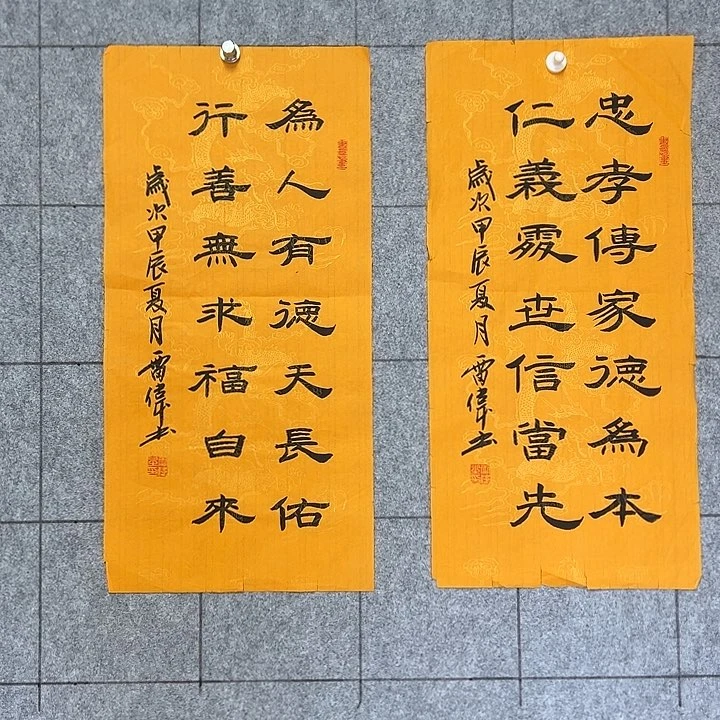 忠孝傳家德為本
仁義處世信當先
歲次甲辰夏月雷偉书
為人有德天長佑
行善無求福自來
歲次甲辰夏月雷偉书